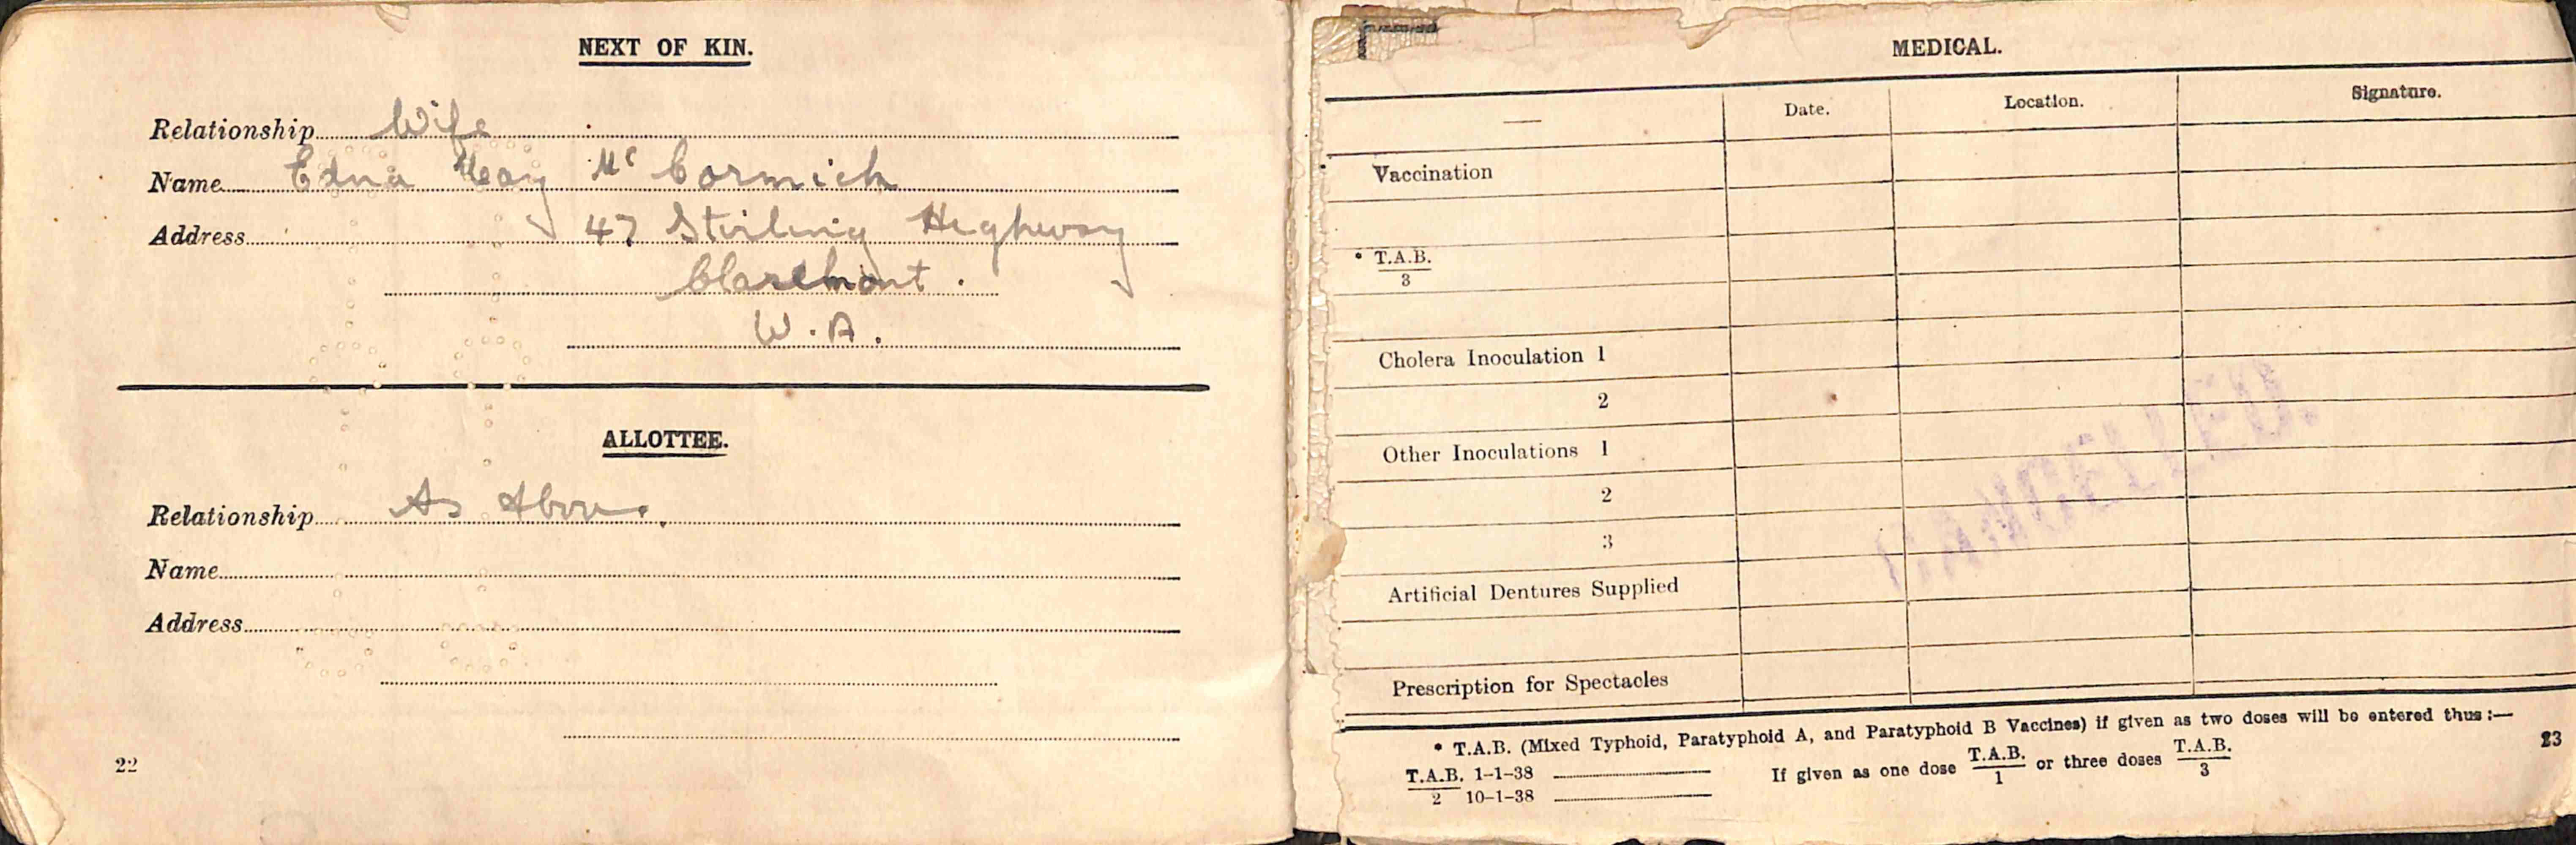 NEXT OF KIN.
Relationship Wife
Name Edna May Mc Cormick
Address 47 Stirling Highway
Claremont.
W.A.
ALLOTTEE.
Relationship As Above.
Name
Address
22
MEDICAL.
Date. Location. Signature.
Vaccination
* T.A.B.
3
Cholera Inoculation 1
2
Other Inoculations 1
2
3
Artificial Dentures Supplied
Prescription for Spectacles
CANCELLED.
* T.A.B. (Mixed Typhoid, Paratyphoid A, and Paratyphoid B Vaccines) if given as two doses will be entered thus:—
T.A.B. 1-1-38
2 10-1-38
If given as one dose T.A.B. or three doses T.A.B.
1 3
23